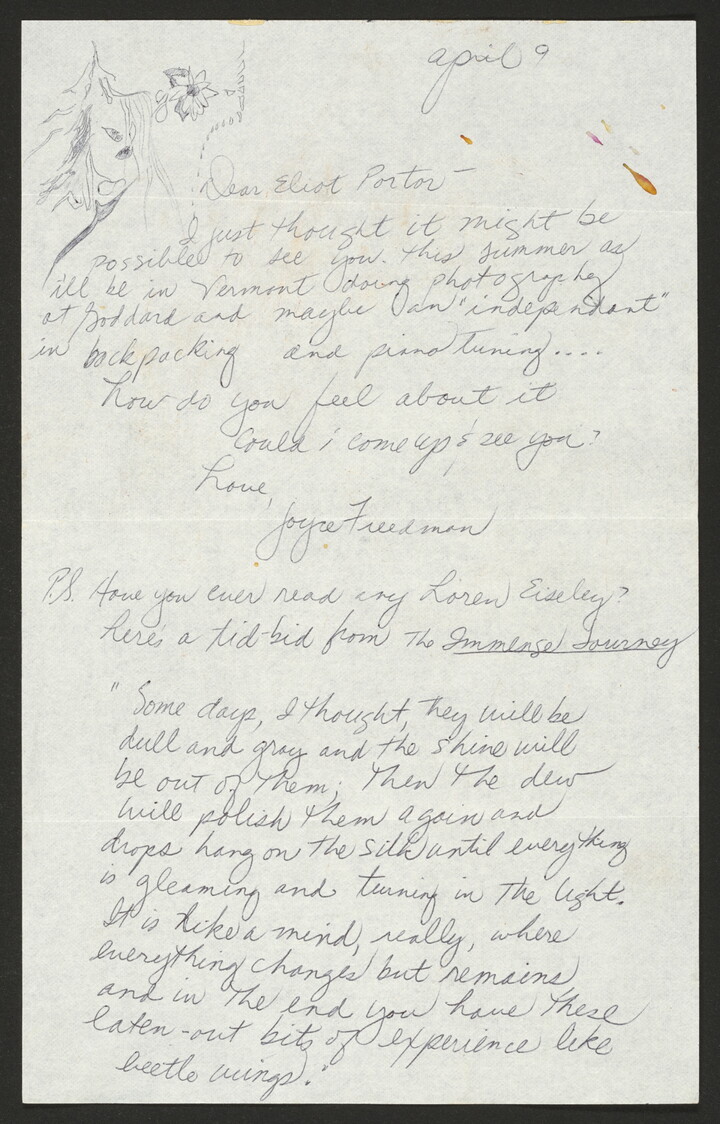 april 9
Dear Eliot Porter-
I just thought it might be
possible to see you this summer as
i'll be in Vermont doing photography
at Goddard and maybe an "independant"
in backpacking and piano tuning....
how do you feel about it
Could i come up & see you?
Love,
Joyce Freedman
P.S. Have you ever read any Loren Eiseley?
here's a tid-bid from The Immense Journey
"Some days, I thought, they will be
dull and gray and the shine will
be out of them; then the dew
will polish them again and
drops hang on the silk until everything
is gleaming and turning in the light.
It is like a mind, really, where
everything changes but remains
and in the end you have these
eaten-out bits of experience like
beetle wings."